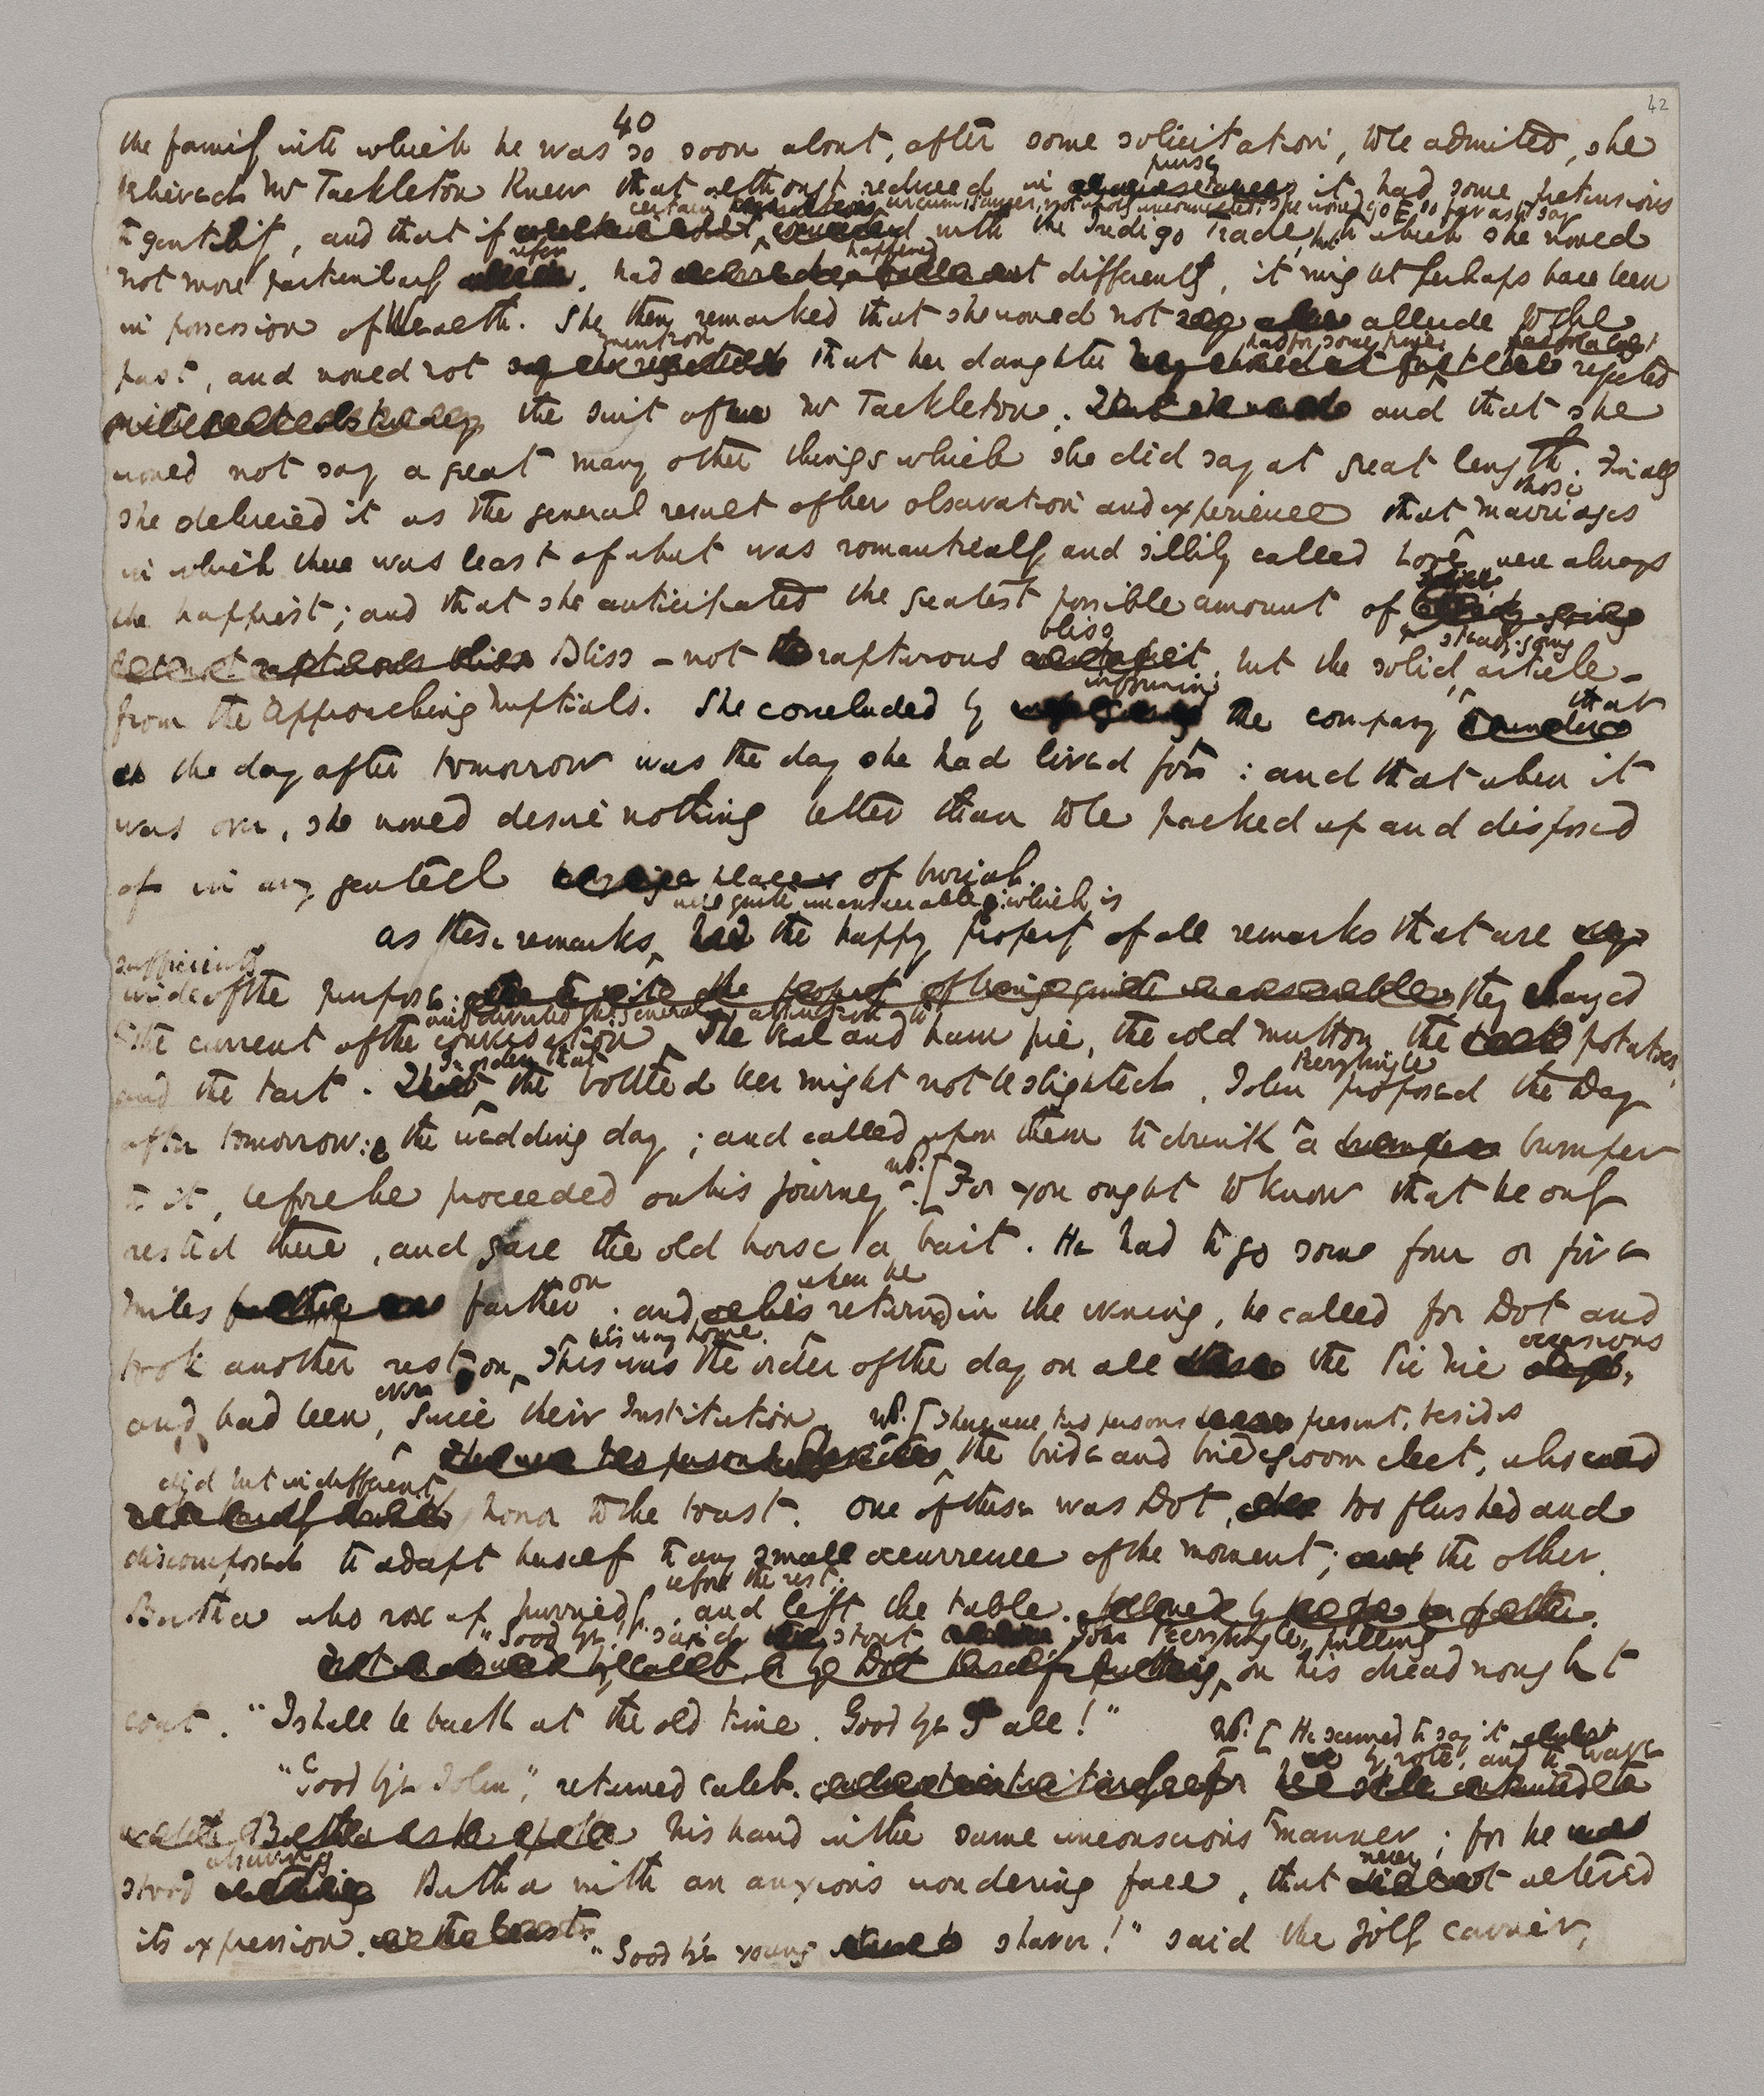 42
40
the family into which he was so soon about, after some solicitation, to be admitted, she
purse
believed Mr Tackleton knew that although reduced in it had some pretensions
certain circumstances, not wholly unconnected, she would go so far as to say
to gentility, and that if with the Indigo Trade, but to which she would
refer happened
not more particularly, had differently, it might perhaps have been
in possession of Wealth. She then remarked that she would not allude to the
mention had for some time
past, and would not that her daughter rejected
the suit of Mr Tackleton. and that she
would not say a great many other things which she did say at great length. Finally
those
she delivered it as the general result of her observation and experience that marriages
in which there was least of what was romantically and sillily called Love were always
the happiest; and that she anticipated the greatest possible amount of
bliss steady-going
Bliss – not rapturous but the solid article –
informing that
from the approaching Nuptials. She concluded by the company
the day after tomorrow was the day she had lived for: and that when it
was over, she would desire nothing better than to be packed up and disposed
of in any genteel place of burial.
were quite unanswerable: which is
As these remarks the happy property of all remarks that are
sufficiently
wide of the purpose: they changed
and diverted the general attention to
the current of the conversation The Veal and ham pie, the cold mutton the potatoes,
In order that Peerybingle
and the tart. the bottled beer might not be slighted, John proposed the Day
after tomorrow: the wedding day; and called upon them to drink a bumper
NP.
to it, before he proceeded on his journey. [For you ought to know that he only
rested there, and gave the old horse a bait. He had to go some four or five
on when he
miles farther. and returned in the evening, he called for Dot and
his way home. occasions
took another rest on This was the order of the day on all the Pic Nic
ever
and had been, since their Institution NP. [There were two persons present, besides
the bride and bridegroom elect, who
did but indifferent
honor to the toast. One of these was Dot, too flushed and
discomposed to adapt herself to any small occurrence of the moment; the other,
before the rest,
Bertha who rose up hurriedly, and left the table.
"Good bye!" said stout John Peerybingle, pulling
on his dreadnought
coat. "I shall be back at the old time. Good bye all!"
NP. [He seemed to say it
by rote, and to wave
"Good bye John," returned Caleb.
his hand in the same unconscious manner; for he
observing never
stood Bertha with an anxious wondering face, that altered
its expression.
"Good bye young shaver!" said the jolly carrier,